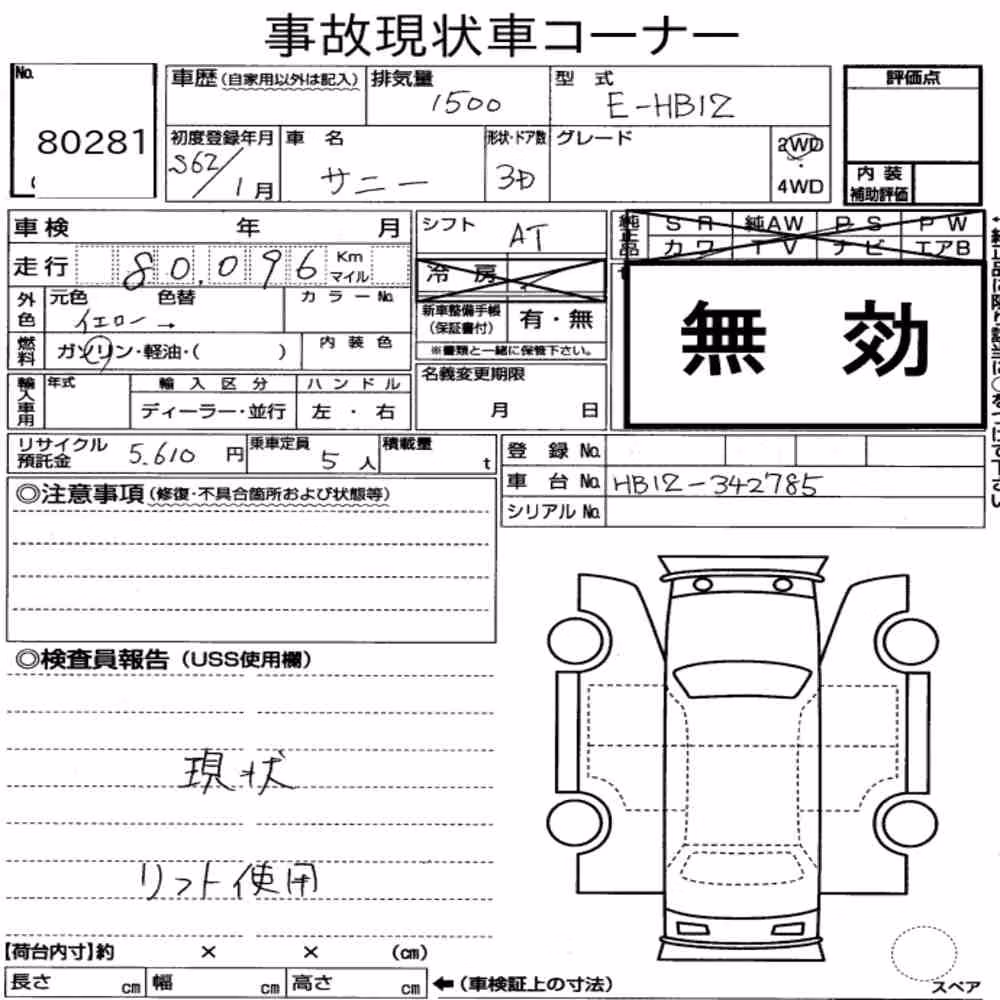 事故現状車コーナー
No.
80281
車歴(自家用以外は記入)
排気量
1500
型 式
E-HB12
評価点
初度登録年月
S62/1月
車 名
サニー
形状・ドア数
3D
グレード
2WD
4WD
内 装
補助評価
車検 年 月
シフト
AT
純正品
S R 純AW P S P W
カワ T V ナビ エアB
走行 80,096 Km マイル
冷 房
無 効
外色
元色 色替
イエロー→
カラーNo.
新車整備手帳
(保証書付)
有・無
※書類と一緒に保管下さい。
燃料
ガソリン・軽油・( )
内 装 色
輸入車用
年式
輸 入 区 分
ディーラー・並行
ハ ン ド ル
左 ・ 右
名義変更期限
月 日
リサイクル
預託金
5.610 円
乗車定員
5 人
積載量
t
登 録 No.
車 台 No. HB12-342785
シリアル No.
◎注意事項(修復・不具合箇所および状態等)
◎検査員報告(USS使用欄)
現状
リフト使用
【荷台内寸】約 × × (cm)
長さ cm 幅 cm 高さ cm ←(車検証上の寸法)
スペア